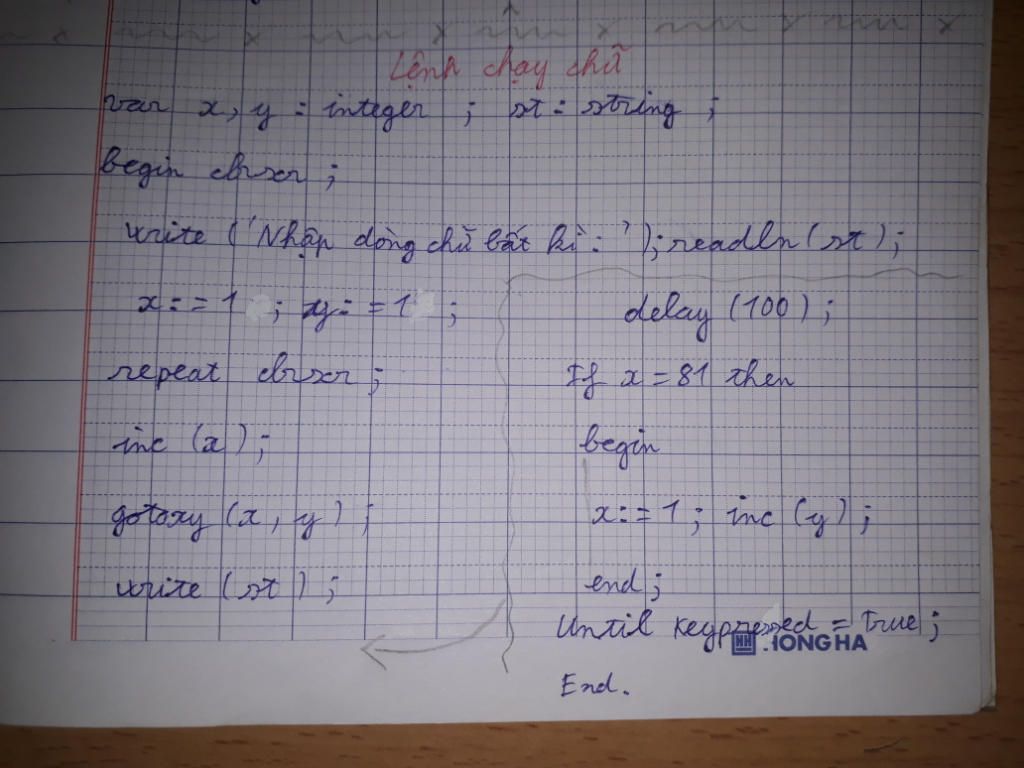 Lệnh chạy chữ
var x, y : integer ; st : string ;
begin clrscr ;
write ('Nhập dòng chữ bất kì : '); readln (st) ;
x := 1 ; y := 1 ;
repeat clrscr ;
inc (x) ;
gotoxy (x, y) ;
write (st) ;
delay (100) ;
If x = 81 then
begin
x := 1 ; inc (y) ;
end ;
Until keypressed = true ;
HONG HA
End.